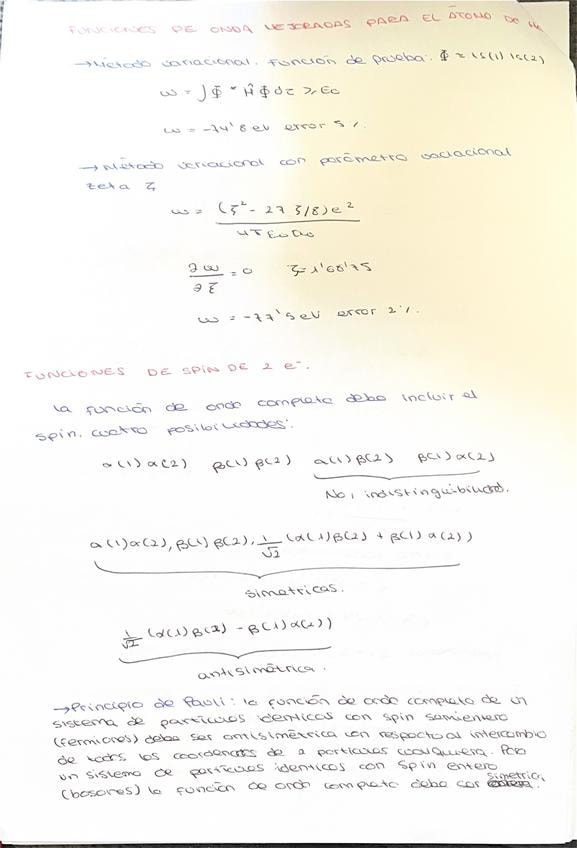 FUNCIONES DE ONDA MEJORADAS PARA EL ÁTOMO DE He
→Método variacional. Función de prueba: Φ = 1s(1) 1s(2)
ω = ∫Φ* Ĥ Φ dτ ≥ E0
ω = -74'8 eV error 5%.
→Método variacional con parámetro variacional
zeta ζ
ω = (ζ² - 27 ζ/8) e² / 4π ε0 a0
∂ω/∂ζ = 0 ζ=1'6875
ω = -77'5 eV error 2%.
FUNCIONES DE SPIN DE 2 e-.
La función de onda completa debe incluir el
spin. Cuatro posibilidades:
α(1)α(2) β(1)β(2) α(1)β(2) β(1)α(2)
No, indistinguibilidad.
α(1)α(2), β(1)β(2), 1/√2 (α(1)β(2) + β(1)α(2))
simetricas.
1/√2 (α(1)β(2) - β(1)α(2))
antisimétrica.
→Principio de Pauli: la función de onda completa de un
sistema de partículas identicas con spin semientero
(fermiones) debe ser antisimétrica con respecto al intercambio
de todas las coordenadas de 2 partículas cualquiera. Para
un sistema de partículas identicas con spin entero
(bosones) la función de onda completa debe ser simétrica.